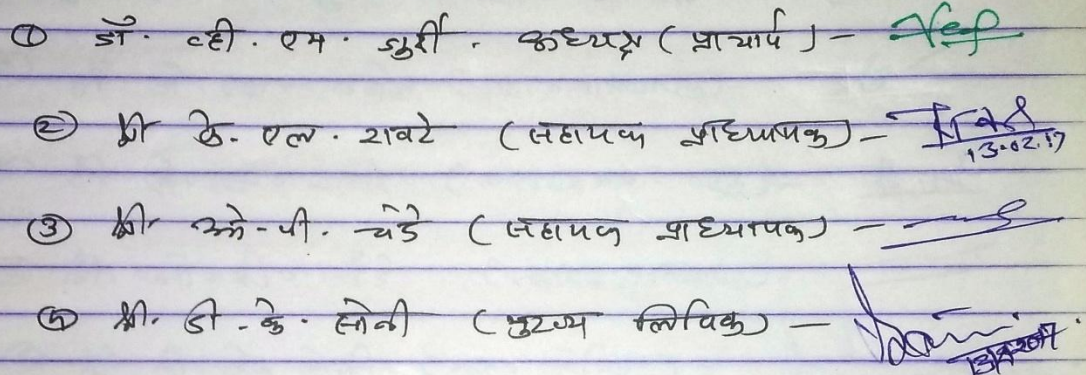 ① डॉ. व्ही. एम. डुर्री. अध्यक्ष (प्राचार्य) -
② श्री के. एल. रावटे (सहायक प्राध्यापक) - 13.02.17
③ श्री ओ-पी. चंडे (सहायक प्राध्यापक) -
④ श्री. डी-के. सोनी (मुख्य लिपिक) - 13/2/2017